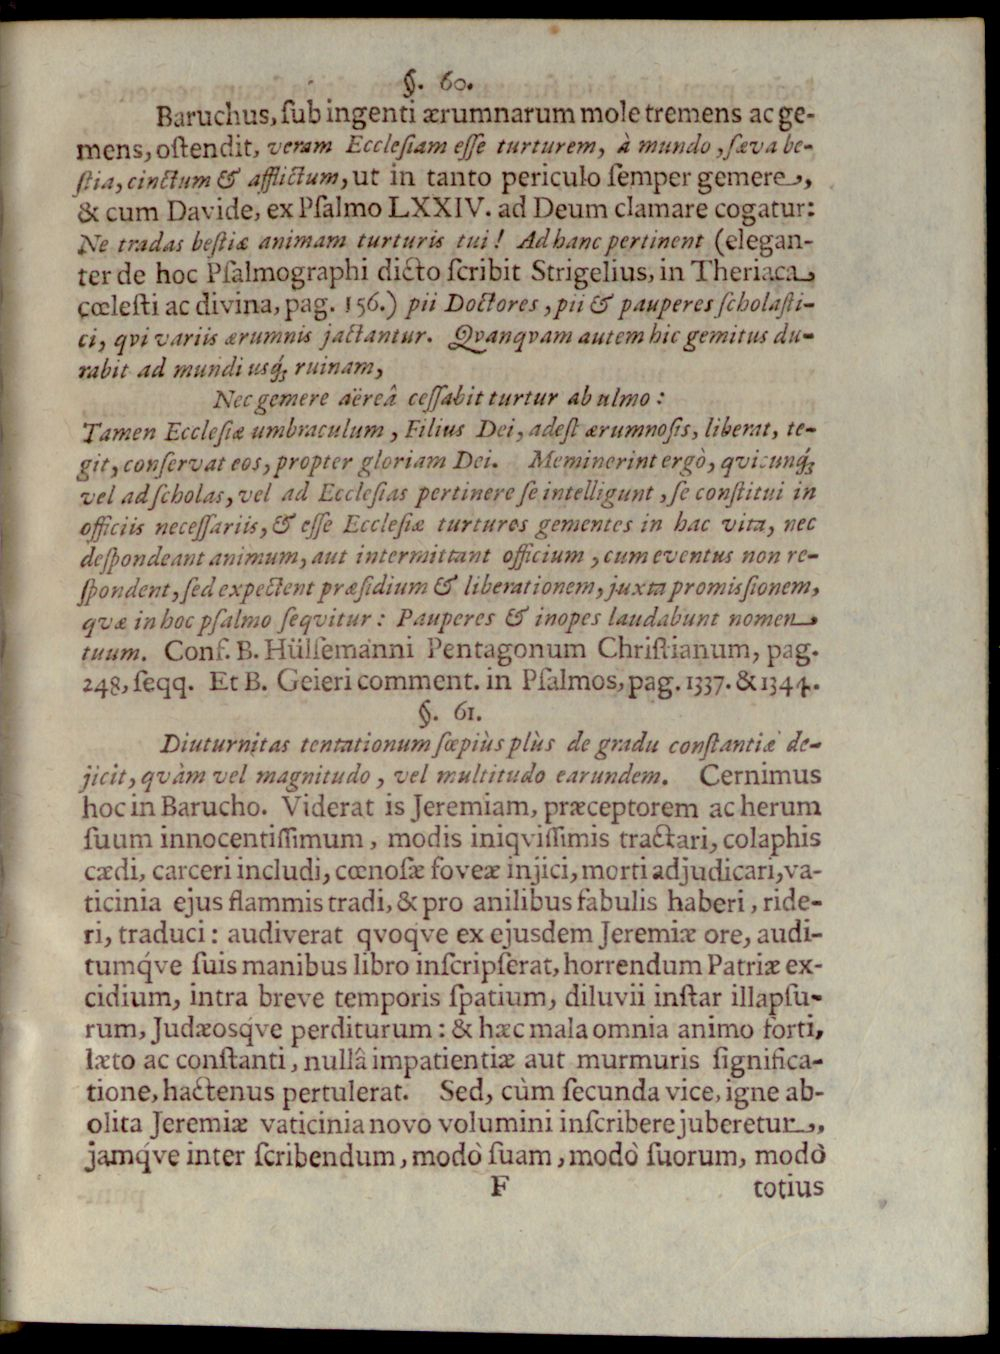 §. 60.
Baruchus, ſub ingenti ærumnarum mole tremens ac ge-
mens, oſtendit, veram Eccleſiam eſſe turturem, à mundo, ſæva be-
ſtia, cinctum & afflictum, ut in tanto periculo ſemper gemere,
& cum Davide, ex Pſalmo LXXIV. ad Deum clamare cogatur:
Ne tradas beſtiæ animam turturis tui! Ad hanc pertinent (elegan-
ter de hoc Pſalmographi dicto ſcribit Strigelius, in Theriaca
cœleſti ac divina, pag. 156.) pii Doctores, pii & pauperes ſcholaſti-
ci, qvi variis ærumnis jactantur. Qvanqvam autem hic gemitus du-
rabit ad mundi usq́ꝫ ruinam,
Nec gemere aëreâ ceſſabit turtur ab ulmo:
Tamen Eccleſiæ umbraculum, Filius Dei, adeſt ærumnoſis, liberat, te-
git, conſervat eos, propter gloriam Dei. Meminerint ergò, qvicunq́ꝫ
vel ad ſcholas, vel ad Eccleſias pertinere ſe intelligunt, ſe conſtitui in
officiis neceſſariis, & eſſe Eccleſiæ turtures gementes in hac vita, nec
deſpondeant animum, aut intermittant officium, cum eventus non re-
ſpondent, ſed expectent præſidium & liberationem, juxta promiſsionem,
qvæ in hoc pſalmo ſeqvitur: Pauperes & inopes laudabunt nomen
tuum. Conf. B. Hülſemanni Pentagonum Chriſtianum, pag.
248, ſeqq. Et B. Geieri comment. in Pſalmos, pag. 1337. & 1344.
§. 61.
Diuturnitas tentationum ſœpiùs plùs de gradu conſtantiæ de-
jicit, qvàm vel magnitudo, vel multitudo earundem. Cernimus
hoc in Barucho. Viderat is Jeremiam, præceptorem ac herum
ſuum innocentiſſimum, modis iniqviſſimis tractari, colaphis
cædi, carceri includi, cœnoſæ foveæ injici, morti adjudicari, va-
ticinia ejus flammis tradi, & pro anilibus fabulis haberi, ride-
ri, traduci: audiverat qvoqve ex ejusdem Jeremiæ ore, audi-
tumq́ve ſuis manibus libro inſcripſerat, horrendum Patriæ ex-
cidium, intra breve temporis ſpatium, diluvii inſtar illapſu-
rum, Judæosq́ve perditurum: & hæc mala omnia animo forti,
læto ac conſtanti, nullâ impatientiæ aut murmuris ſignifica-
tione, hactenus pertulerat. Sed, cùm ſecunda vice, igne ab-
olita Jeremiæ vaticinia novo volumini inſcribere juberetur,
jamq́ve inter ſcribendum, modò ſuam, modò ſuorum, modò
F totius